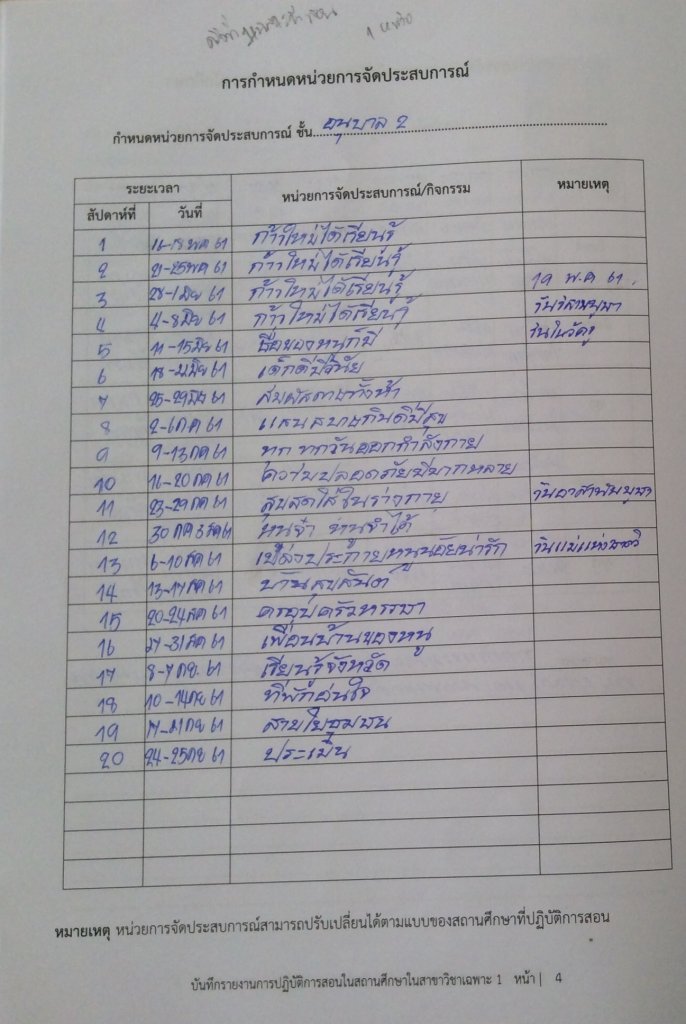 1 หน่วย
การกำหนดหน่วยการจัดประสบการณ์
กำหนดหน่วยการจัดประสบการณ์ ชั้น อนุบาล 2
ระยะเวลา หน่วยการจัดประสบการณ์/กิจกรรม หมายเหตุ
สัปดาห์ที่ วันที่
1 14-18 พค 61 ก้าวใหม่ได้เรียนรู้
2 21-25 พค 61 ก้าวใหม่ได้เรียนรู้
3 28-1 มิย 61 ก้าวใหม่ได้เรียนรู้ 19 พ.ค 61
4 4-8 มิย 61 ก้าวใหม่ได้เรียนรู้ วันวิสาขบูชา
5 11-15 มิย 61 ชื่อของหนูก็มี วันไหว้ครู
6 18-22 มิย 61 เด็กดีมีวินัย
7 25-29 มิย 61 สัมผัสทางทั้งห้า
8 2-6 กค 61 แสนสบายกินดีมีสุข
9 9-13 กค 61 ทุก ทุกวันออกกำลังกาย
10 16-20 กค 61 ความปลอดภัยมีมากหลาย
11 23-29 กค 61 สุขสดใสในร่างกาย วันอาสาฬหบูชา
12 30 กค 3 สค 61 หนูจ๋า หนูทำได้
13 6-10 สค 61 เปล่งประกายหนูน้อยน่ารัก วันแม่แห่งชาติ
14 13-17 สค 61 บ้านสุขสันต์
15 20-24 สค 61 ครอบครัวหรรษา
16 27-31 สค 61 เพื่อนบ้านของหนู
17 3-7 กย. 61 เรียนรู้จังหวัด
18 10-14 กย 61 ที่พักผ่อนใจ
19 17-21 กย 61 สายใยชุมชน
20 24-25 กย 61 ประเมิน
หมายเหตุ หน่วยการจัดประสบการณ์สามารถปรับเปลี่ยนได้ตามแบบของสถานศึกษาที่ปฏิบัติการสอน
บันทึกรายงานการปฏิบัติการสอนในสถานศึกษาในสาขาวิชาเฉพาะ 1 หน้า | 4